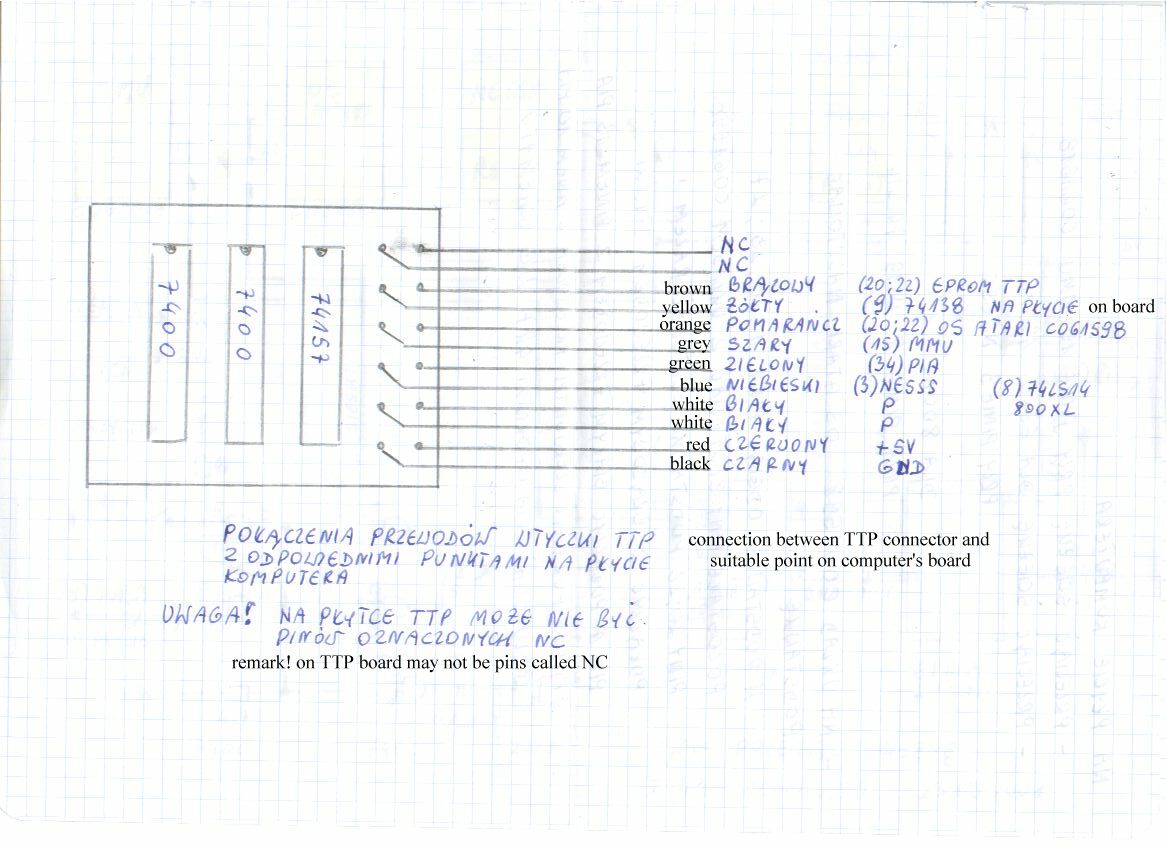 NC
NC
brown BRĄZOWY (20;22) EPROM TTP
yellow ŻÓŁTY . (9) 74138 NA PŁYCIE on board
orange POMARAŃCZ (20;22) OS ATARI CO61598
grey SZARY (15) MMU
green ZIELONY (34) PIA
blue NIEBIESKI (3) NE555 (8) 74LS14
white BIAŁY P 800XL
white BIAŁY P
red CZERWONY +5V
black CZARNY GND
7400
7400
74157
POŁĄCZENIA PRZEWODÓW WTYCZKI TTP
Z ODPOWIEDNIMI PUNKTAMI NA PŁYCIE
KOMPUTERA
connection between TTP connector and
suitable point on computer's board
UWAGA! NA PŁYTCE TTP MOŻE NIE BYĆ
PINÓW OZNACZONYCH NC
remark! on TTP board may not be pins called NC